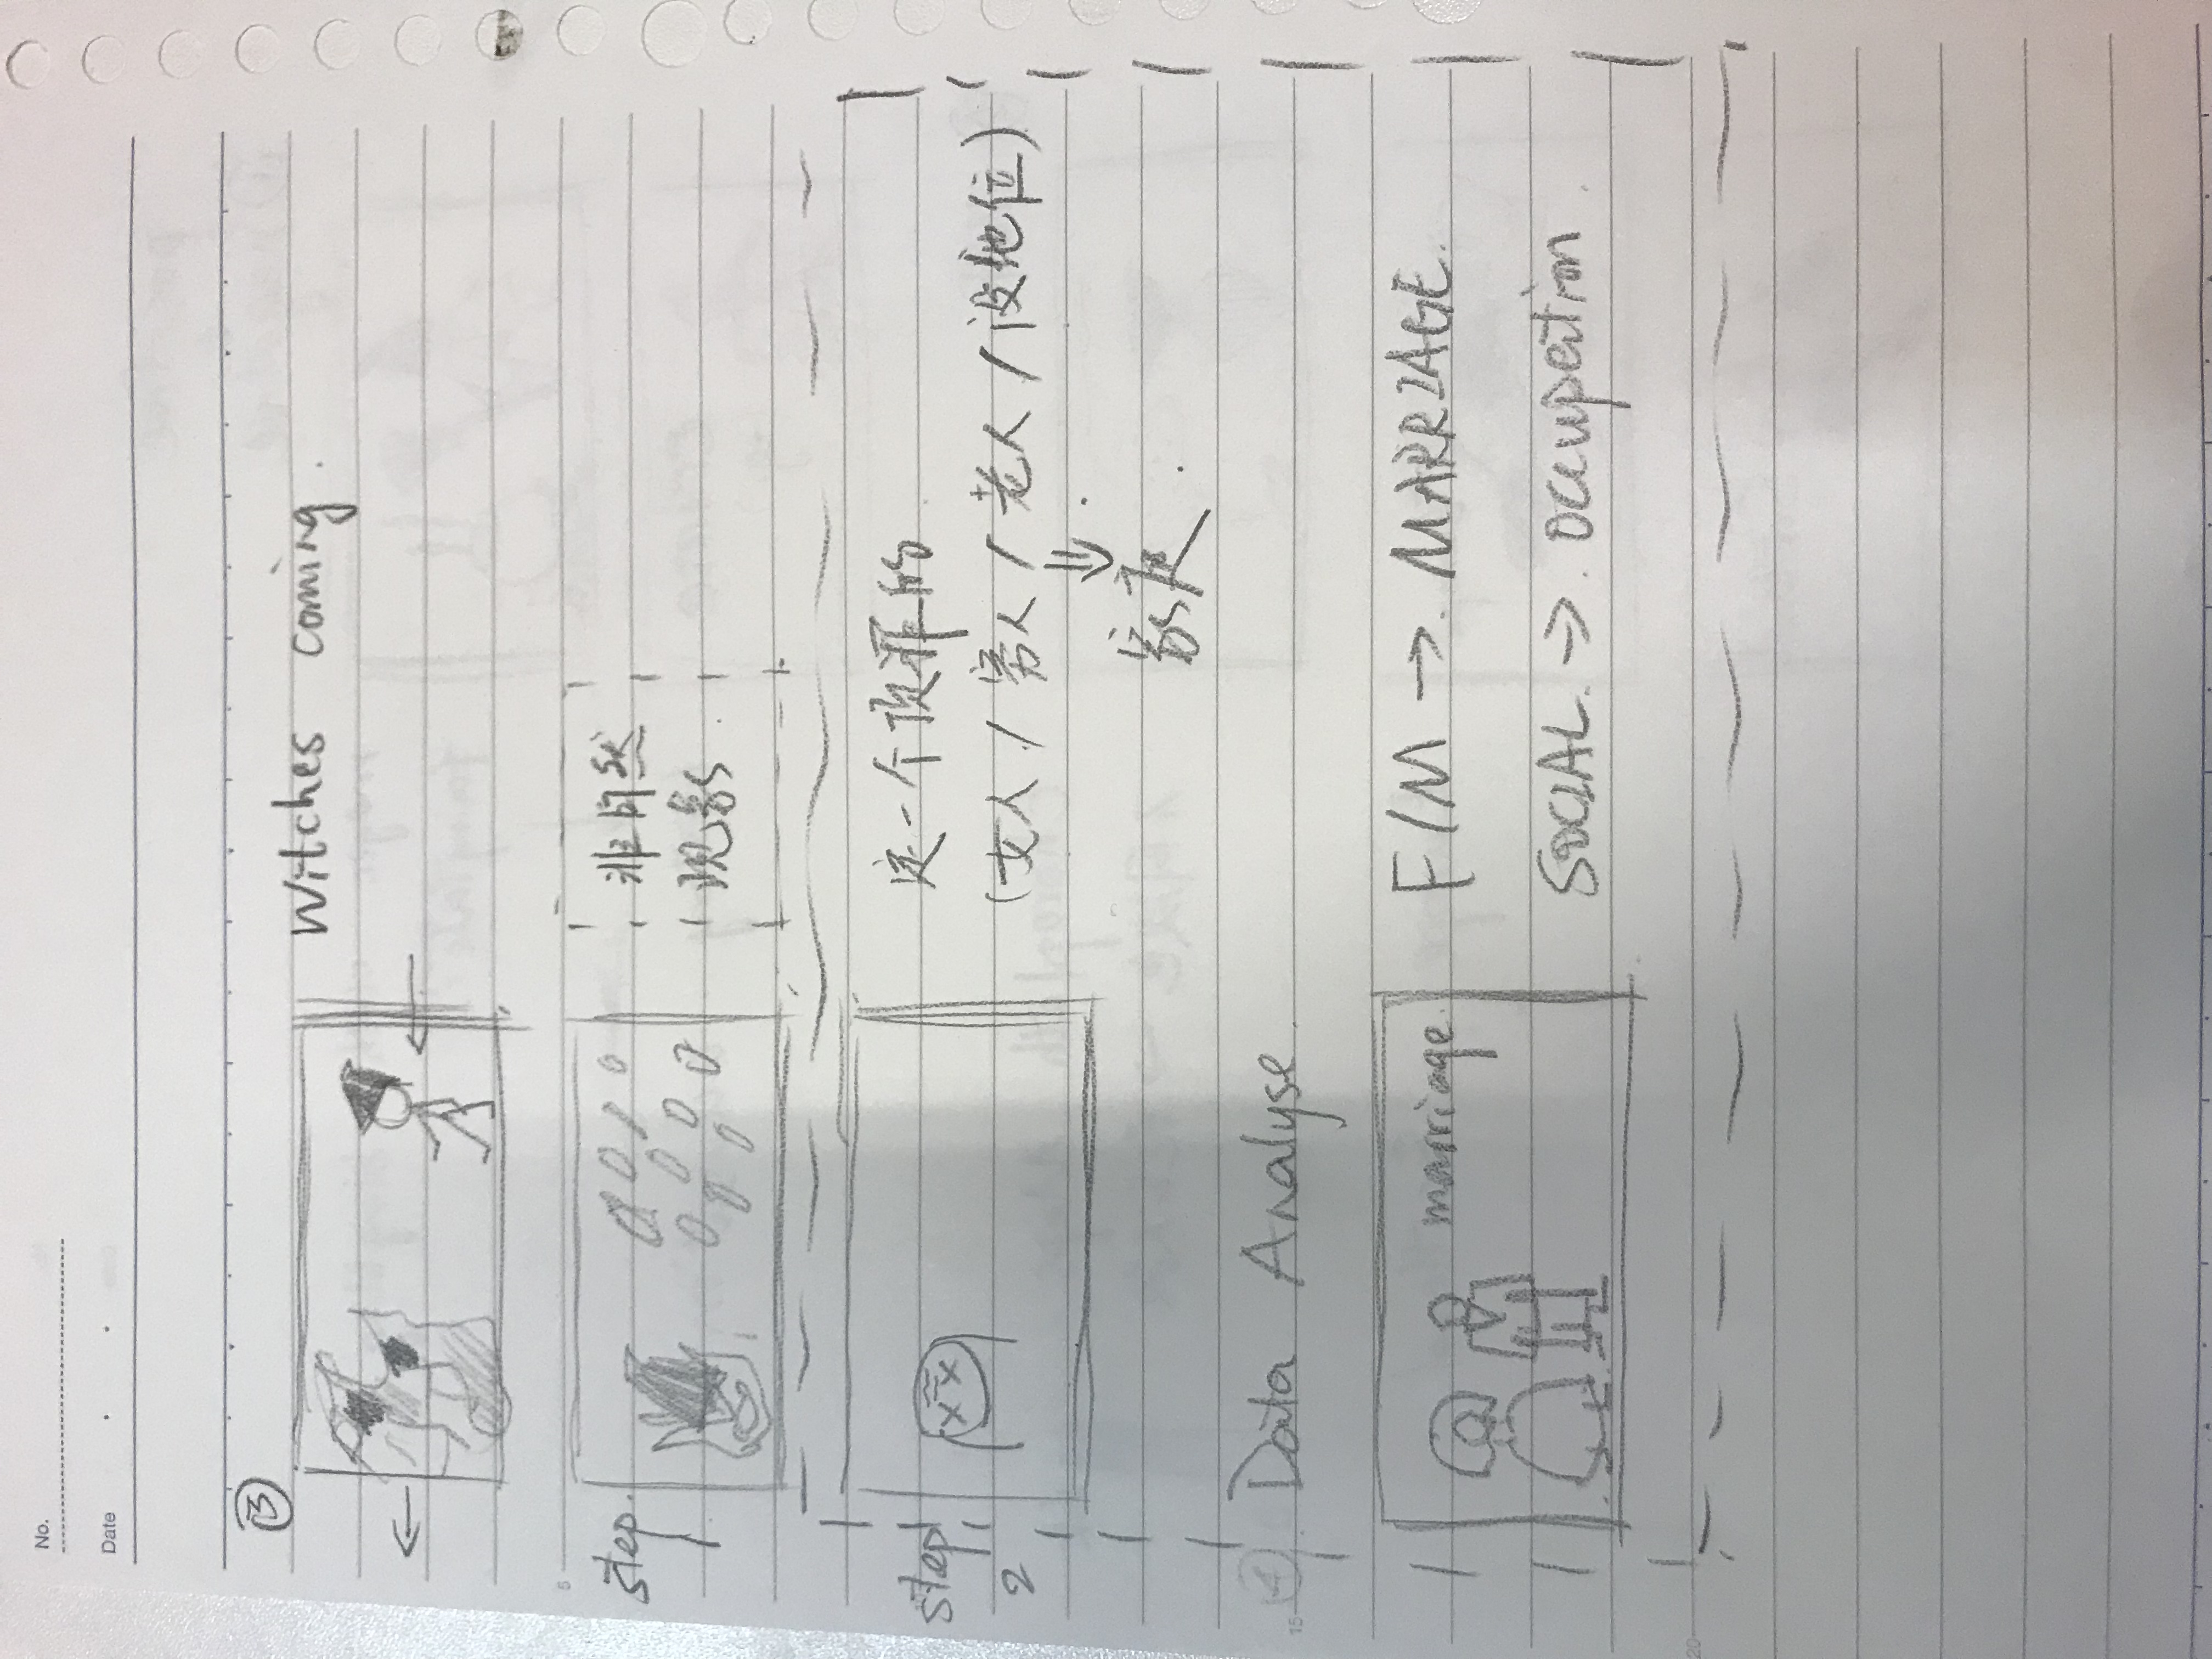 No.
Date
③
Witches coming.
step.
1
非自然
现象.
step
2
定一个顶罪的
(女人/穷人/老人/没地位)
⇓.
家庭.
④. Data Analyse.
marriage.
F/M → MARRIAGE.
SOCIAL. → occupation.
5
15
20